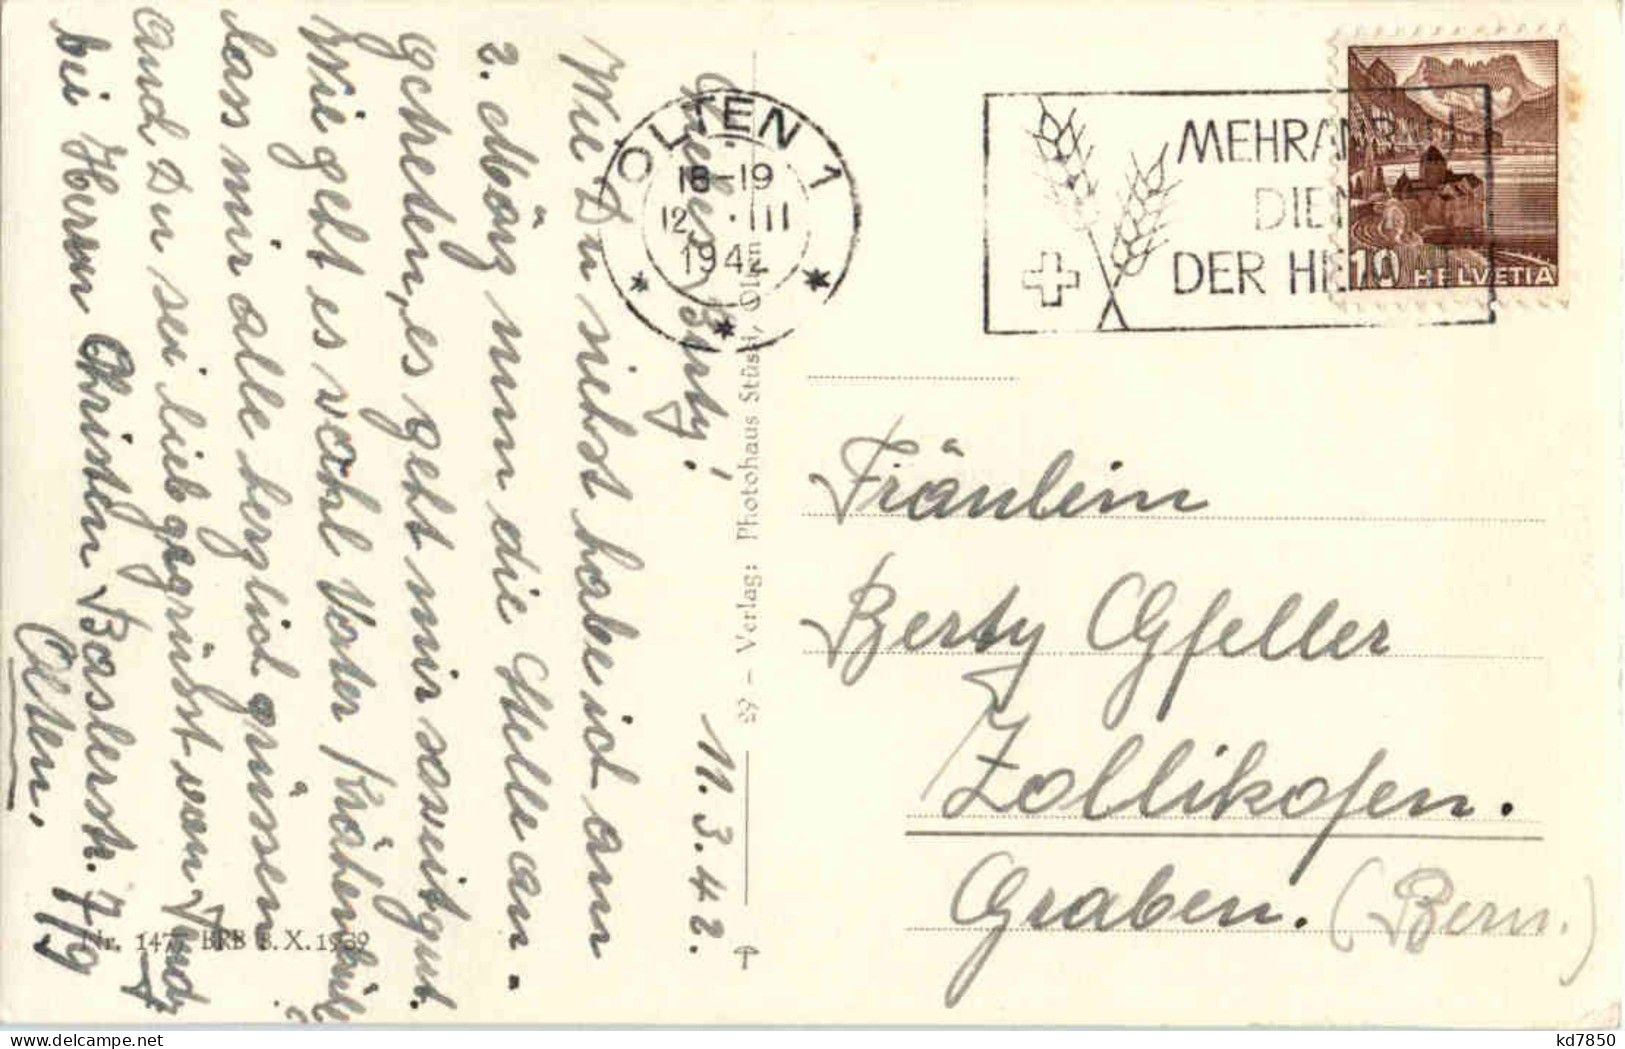 11.3.42.
Liebes Berty!
Wie Du siehst habe ich am
2. März nun die Stelle an-
getreten, es geht mir soweit gut.
Wie geht es wohl Vater Krähenbühl?
Lass mir alle herzlich grüssen
und Du sei lieb gegrüsst von
bei Herrn Christen Baslerstr. 7/9
Olten.
Nr. 1477 BRB 3.X.1939
29 – Verlag: Photohaus Stüssi, Olten
OLTEN 1
18-19
12. III
194
MEHRANBAU
DIEN
DER HE
10 HELVETIA
Fräulein
Berty Gfeller
Zollikofen.
Graben. (Bern.)
kd7850